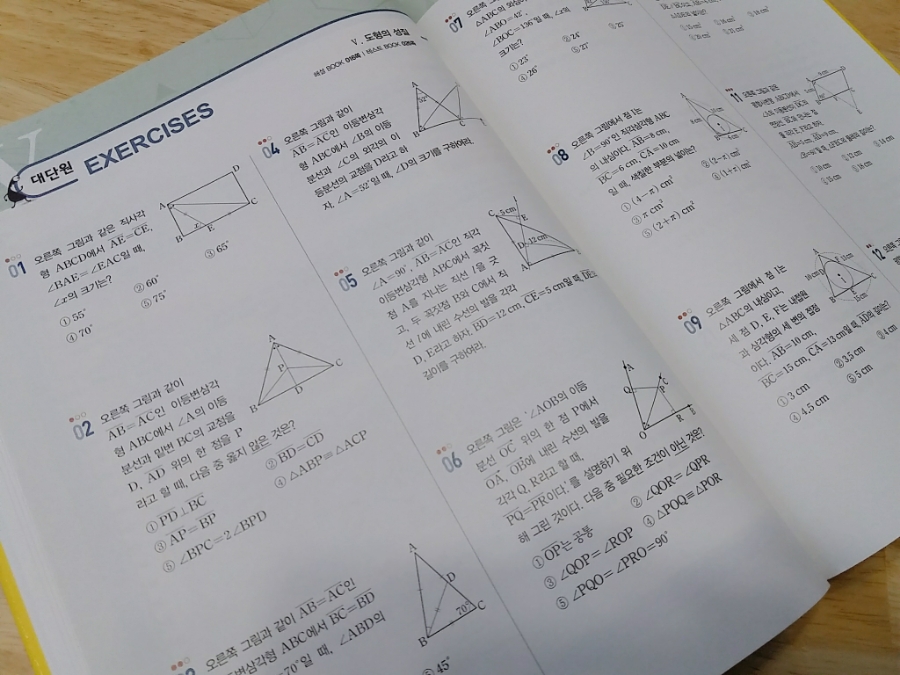 Ⅴ. 도형의 성질
대단원 EXERCISES
01 오른쪽 그림과 같은 직사각
형 ABCD에서 AE=CE,
∠BAE=∠EAC일 때,
∠x의 크기는?
① 55° ② 60° ③ 65°
④ 70° ⑤ 75°
A
D
B
E
C
x
02 오른쪽 그림과 같이
AB=AC인 이등변삼각
형 ABC에서 ∠A의 이등
분선과 밑변 BC의 교점을
D, AD 위의 한 점을 P
라고 할 때, 다음 중 옳지 않은 것은?
① PD⊥BC ② BD=CD
③ AP=BP ④ △ABP≡△ACP
⑤ ∠BPC=2∠BPD
A
P
B
D
C
오른쪽 그림과 같이 AB=AC인
ABC에서 BC=BD
70°일 때, ∠ABD의
⑤ 45°
A
D
B
70°
C
04 오른쪽 그림과 같이
AB=AC인 이등변삼각
형 ABC에서 ∠B의 이등
분선과 ∠C의 외각의 이
등분선의 교점을 D라고 하
자. ∠A=52°일 때, ∠D의 크기를 구하여라.
A
52°
B
C
05 오른쪽 그림과 같이
∠A=90°, AB=AC인 직각
이등변삼각형 ABC에서 꼭짓
점 A를 지나는 직선 l을 긋
고, 두 꼭짓점 B와 C에서 직
선 l에 내린 수선의 발을 각각
D, E라고 하자. BD=12 cm, CE=5 cm일 때,
길이를 구하여라.
C
5 cm
E
D
12 cm
A
06 오른쪽 그림은 '∠AOB의 이등
분선 OC 위의 한 점 P에서
OA, OB에 내린 수선의 발을
각각 Q, R라고 할 때,
PQ=PR이다.'를 설명하기 위
해 그린 것이다. 다음 중 필요한 조건이 아닌 것은?
① OP는 공통 ② ∠QOR=∠QPR
③ ∠QOP=∠ROP ④ △POQ≡△POR
⑤ ∠PQO=∠PRO=90°
A
Q
C
P
O
R
B
07
∠ABO=42°,
∠BOC=136°일 때, ∠x의
크기는?
① 23° ② 24° ③ 25°
④ 26° ⑤ 27°
08 오른쪽 그림에서 점 I는
∠B=90°인 직각삼각형 ABC
의 내심이다. AB=8 cm,
BC=6 cm, CA=10 cm
일 때, 색칠한 부분의 넓이는?
① (4-π) cm²
③ π cm²
⑤ (2+π) cm²
09 오른쪽 그림에서 점 I는
△ABC의 내심이고,
세 점 D, E, F는 내접원
과 삼각형의 세 변의 접점
이다. AB=10 cm,
BC=15 cm, CA=13 cm일 때, AD의 길이는?
① 3 cm ② 3.5 cm ③ 4 cm
④ 4.5 cm ⑤ 5 cm
11
12